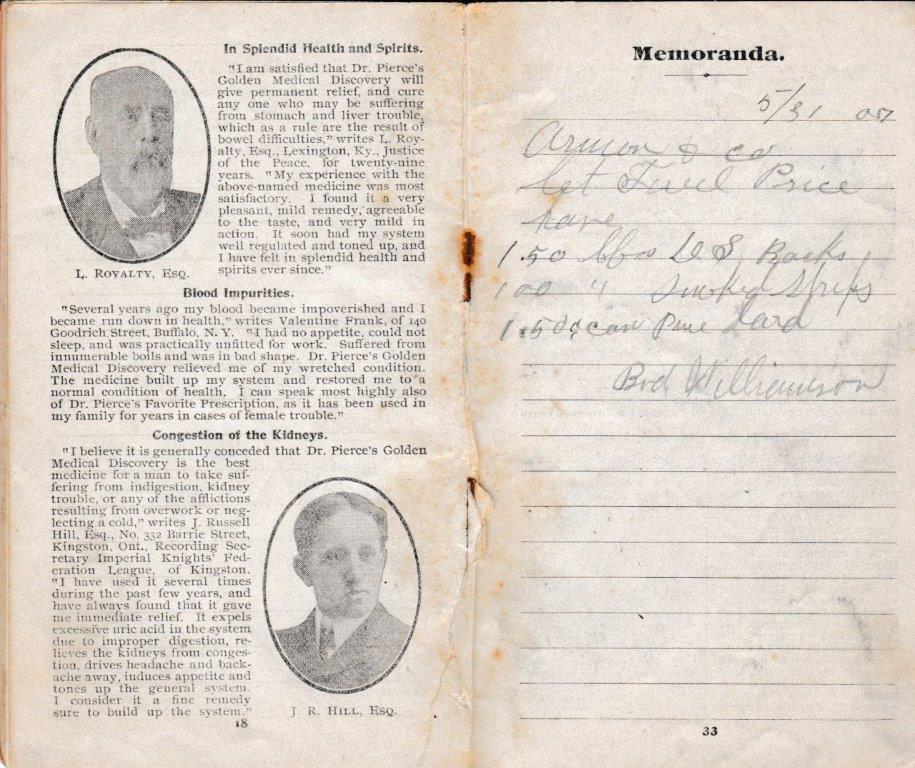 In Splendid Health and Spirits.
"I am satisfied that Dr. Pierce's
Golden Medical Discovery will
give permanent relief, and cure
any one who may be suffering
from stomach and liver trouble,
which as a rule are the result of
bowel difficulties," writes L. Roy-
alty, Esq., Lexington, Ky., Justice
of the Peace, for twenty-nine
years. "My experience with the
above-named medicine was most
satisfactory. I found it a very
pleasant, mild remedy, agreeable
to the taste, and very mild in
action. It soon had my system
well regulated and toned up, and
I have felt in splendid health and
spirits ever since."
L. ROYALTY, ESQ.
Blood Impurities.
"Several years ago my blood became impoverished and I
became run down in health," writes Valentine Frank, of 140
Goodrich Street, Buffalo, N. Y. "I had no appetite, could not
sleep, and was practically unfitted for work. Suffered from
innumerable boils and was in bad shape. Dr. Pierce's Golden
Medical Discovery relieved me of my wretched condition.
The medicine built up my system and restored me to a
normal condition of health. I can speak most highly also
of Dr. Pierce's Favorite Prescription, as it has been used in
my family for years in cases of female trouble."
Congestion of the Kidneys.
"I believe it is generally conceded that Dr. Pierce's Golden
Medical Discovery is the best
medicine for a man to take suf-
fering from indigestion, kidney
trouble, or any of the afflictions
resulting from overwork or neg-
lecting a cold," writes J. Russell
Hill, Esq., No. 332 Barrie Street,
Kingston, Ont., Recording Sec-
retary Imperial Knights' Fed-
eration League, of Kingston.
"I have used it several times
during the past few years, and
have always found that it gave
me immediate relief. It expels
excessive uric acid in the system
due to improper digestion, re-
lieves the kidneys from conges-
tion, drives headache and back-
ache away, induces appetite and
tones up the general system.
I consider it a fine remedy
sure to build up the system."
J. R. HILL, ESQ.
18
Memoranda.
5/31 07
& co
Price
have
1.50 D S Backs
100 " Smoked Strips
1.50 can Pure Lard
Williamson
33